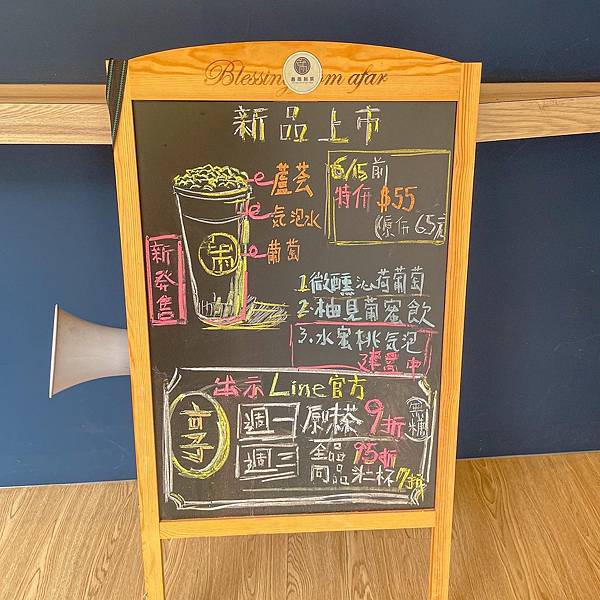 Blessing from afar
新品上市
6/15前
特價 $55
(原價 65元
蘆荟
気泡水
葡萄
新發售
1.微醺沁荷葡萄
2.柚見葡蜜飲
3.水蜜桃気泡
建蒿中
出示Line官方
好友
週一 原味茶 9折 無糖
週二 全品 95折
同品 第二杯 7折